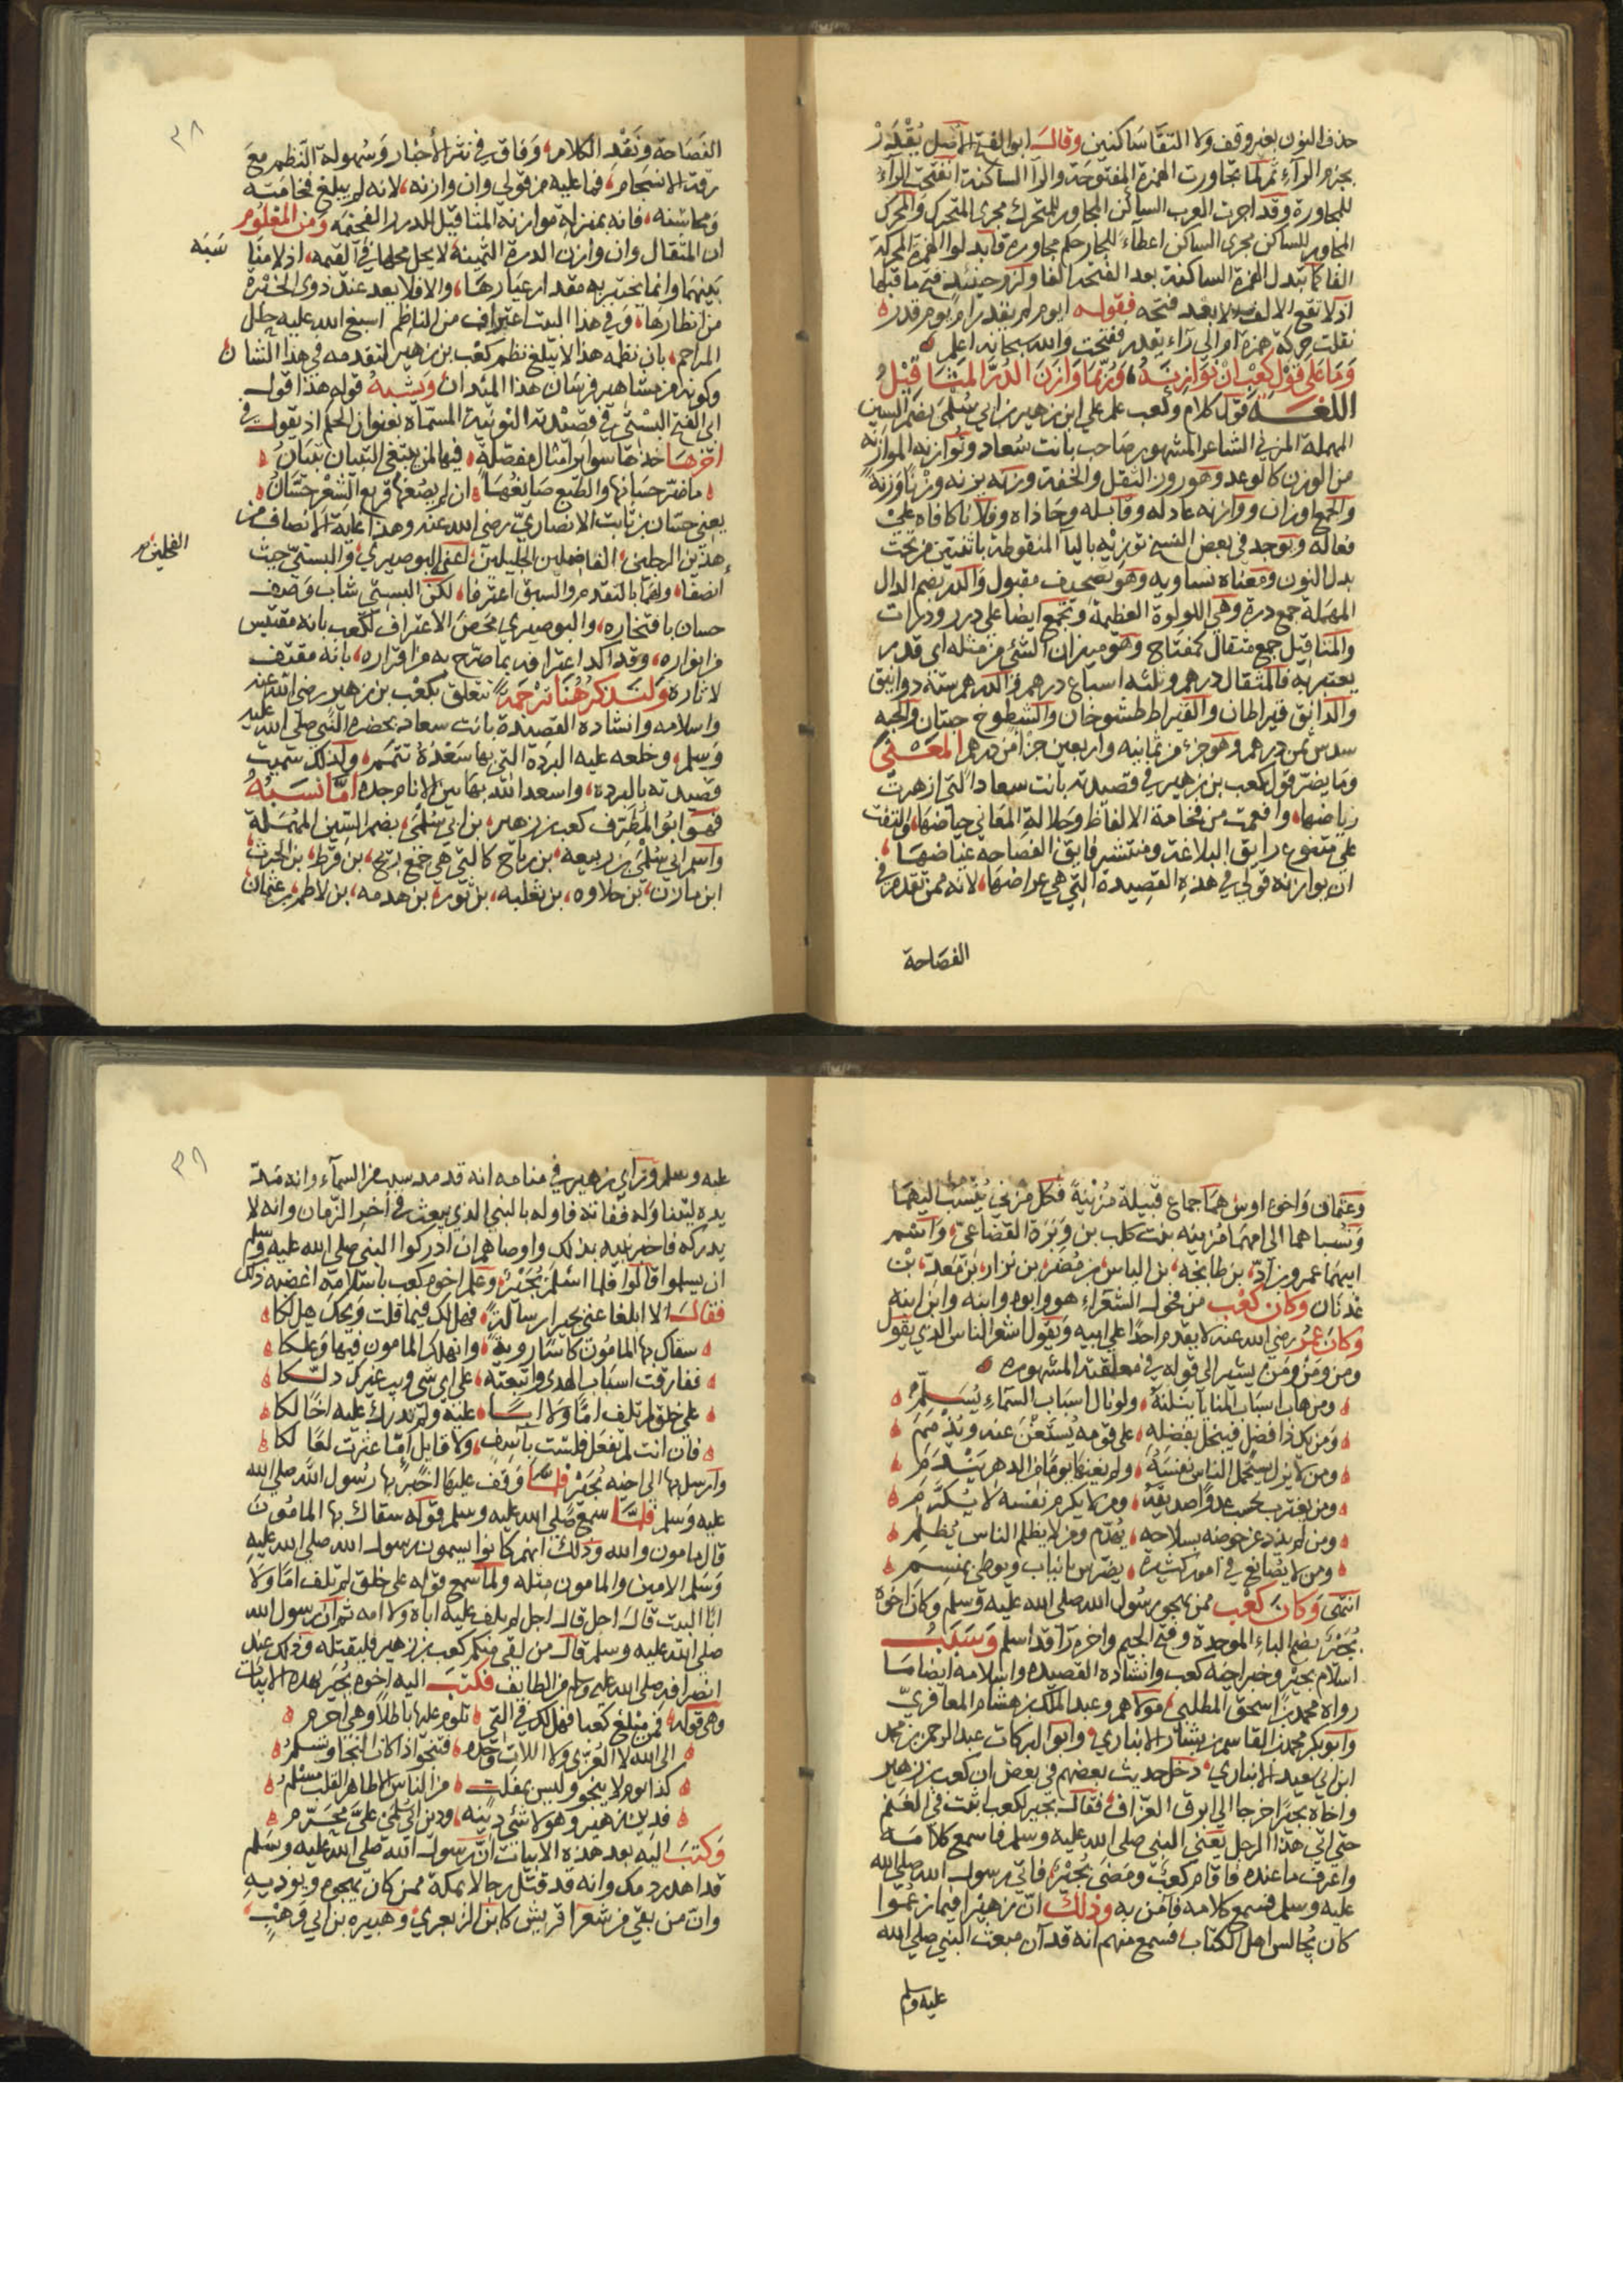 حذف النون بغير وقف ولا التقا ساكنين وقال ابو الفتح الاصل يقدر
بجزم الرآء ثم لما تجاورت الهمزة المفتوحة والرآ الساكنة انفتحت الرآء
للمجاورة وقد اجرت العرب الساكن المجاور للمتحرك مجرى المتحرك والمتحرك
المجاور للساكن مجرى الساكن اعطاء للجار حكم مجاوره فابدلوا الهمزة المحركة
الفا كما تبدل الهمزة الساكنة بعد الفتحة الفا ولزم حينئذ فتح ما قبلها
اذ لا تقع الالف الا بعد فتحه فقوله ايوم لم يقدر ام يوم قدر
نقلت حركة همزة ام الى رآء يقدر ففتحت والله سبحانه اعلم
وما على قول كعب ان توازنه وربما وازن الدر المثاقيل
اللغة قول كلام وكعب علم على ابن زهير بن ابي سلمى بضم السين
المهملة المزني الشاعر المشهور صاحب بانت سعاد وتوازنه الموازنة
من الوزن كالوعد وهو روز الثقل والخفة وزنه يزنه وزنا وزنة
والجمع اوزان ووازنه عادله وقابله وحاذاه وفلانا كافاه على
فعاله ويوجد في بعض النسخ توزيه باليا المنقوطة باثنتين من تحت
بدل النون ومعناه تساويه وهو تصحيف مقبول والدر بضم الدال
المهملة جمع درة وهي اللولوة العظيمة وتجمع ايضا على درر ودرات
والمثاقيل جمع مثقال كمفتاح وهو ميزان الشئ من مثله اى قدر
يعتبر به فالمثقال درهم وثلثه اسباع درهم والدرهم ستة دوانيق
والدانق قيراطان والقيراط طسوجان والطسوج حبتان والحبه
سدس ثمن درهم وهو جزء من ثمانيه واربعين جزأ من درهم المعنى
وما يضر قول كعب بن زهير في قصيدته بانت سعاد التى ازهرت
رياضها وافعمت من فخامة الالفاظ وجلالة المعاني حياضها والتفت
على متضوع رايق البلاغة ومنتشر فايق الفصاحه غياضها
ان يوازنه قولى في هذه القصيدة التي هي عراضها لانه ممن تقدم في
الفصاحة
٣٨
الفصاحة ونقد الكلام وفاق في نثر الأخبار وسهولة النظم مع
رقة الانسجام فما عليه من قولي وان وازنه لانه لم يبلغ فخامته
ومحاسنه فانه بمنزلة موازنة المثاقيل للدرر الفخيمه ومن المعلوم
ان المثقال وان وازن الدرة الثمينة لا يحل محلها في القيمه اذ لا مناسبه
بينهما وانما يختبر به مقدار عيارها والا فلا يعد عند ذوى الخبرة
من انظارها وفي هذا البيت اعتراف من الناظم اسبغ الله عليه حلل
المراحم بان نظمه هذا لا يبلغ نظم كعب بن زهير لتقدمه في هذا الشان
وكونه من مشاهير فرسان هذا الميدان ويشبه قوله هذا قول
ابى الفتح البستى في قصيدته النونية المسماة بعنوان الحكم اذ يقول في
اخرها خذها سوايرا مثال مفصلة فيها لمن يبتغي التبيان تبيان
ما ضر حسانها والطبع صايغها ان لم يصغها قريع الشعر حسان
يعني حسان بن ثابت الانصاري رضي الله عنه وهذا غاية الانصاف من
هذين الرجلين الفاضلين الجليلين اعني البوصيري والبستي حيث
الفحلين
انصفا ولهما بالتقدم والسبق اعترفا لكن البستي شاب وصف
حسان بافتخاره والبوصيري محض الاعتراف لكعب بانه مقتبس
من انواره وقد اكد اعترافه بما صرح به من اقراره بانه مقتف
لاثاره ولنذكر هنا ترجمة تتعلق بكعب بن زهير رضي الله عنه
واسلامه وانشاده القصيدة بانت سعاد بحضرة النبي صلى الله عليه
وسلم وخلعه عليه البردة التي بها سعده تتمم ولذلك سميت
قصيدته بالبرده واسعد الله بها بين الانام جده اما نسبه
فهو ابو المظرف كعب بن زهير بن ابي سلمى بضم السين المهملة
واسم ابي سلمى بن ربيعه بن رياح كالتي هي جمع ريح بن قرط بن الحرث
ابن مازن بن حلاوه بن ثعلبه بن ثور بن هدمه بن لاطم بن عثمان
وعثمان واخوه اوس هما جماع قبيلة مزينة فكل مزني ينسب اليهما
ونسباهما الى امهما مزينه بنت كلب بن وبرة القضاعي واسم
ابيهما عمرو بن اد بن طابخه بن الياس بن مضر بن نزار بن معد بن
عدنان وكان كعب من فحول الشعراء هو وابوه وابنه وابن ابنه
وكان عمر رضي الله عنه لا يقدم احدا على ابيه ويقول اشعر الناس الذي يقول
ومن ومن ومن يشير الى قوله في معلقته المشهوره
ومن هاب اسباب المنايا ينلنه ولو نال اسباب السماء بسلم
ومن يك ذا فضل فيبخل بفضله على قومه يستغن عنه ويذمم
ومن لا يزل يستحمل الناس نفسه ولم يغنها يوما من الدهر يندم
ومن يغترب يحسب عدوا صديقه ومن لا يكرم نفسه لا يكرم
ومن لم يذد عن حوضه بسلاحه يهدم ومن لا يظلم الناس يظلم
ومن لا يصانع في امور كثيرة يضرس بانياب ويوطى بمنسم
انتهى وكان كعب ممن يهجو رسول الله صلى الله عليه وسلم وكان اخوه
بجير بضم الباء الموحدة وفتح الجيم واخره رآ قد اسلم وسبب
اسلام بجير وخبر اخيه كعب وانشاده القصيده واسلامه ايضا ما
رواه محمد بن اسحق المطلبي مولاهم وعبد الملك بن هشام المعافري
وابو بكر محمد بن القاسم بن بشار الانباري وابو البركات عبد الرحمن بن محمد
ابن ابي سعيد الانباري دخل حديث بعضهم في بعض ان كعب بن زهير
واخاه بجيرا خرجا الى ابرق العزاف فقال بجير لكعب اثبت في الغنم
حتى اتى هذا الرجل يعني النبي صلى الله عليه وسلم فاسمع كلامه
واعرف ما عنده فاقام كعب ومضى بجير فاتى رسول الله صلى الله
عليه وسلم فسمع كلامه فامن به وذلك ان زهيرا فيما زعموا
كان يجالس اهل الكتاب فسمع منهم انه قد آن مبعث النبي صلى الله
عليه وسلم
٣٩
عليه وسلم وراى زهير في منامه انه قد مد سبب من السمآء وانه مد
يده ليتناوله ففاته فاوله بالنبي الذي يبعث في اخر الزمان وانه لا
يدركه فاخبر بنيه بذلك واوصاهم ان ادركوا النبي صلى الله عليه وسلم
ان يسلموا قالوا فلما اسلم بجير وعلم اخوه كعب باسلامه اغضبه ذلك
فقال الا ابلغا عني بجيرا رسالة فهل لك فيما قلت ويحك هل لكا
سقاك بها المامون كاسا روية وانهلك المامون فيها وعلكا
ففارقت اسباب الهدى واتبعته على اى شي ويب غيرك دلكا
على خلق لم تلف اما ولا ابا عليه ولم تدرك عليه اخا لكا
فان انت لم تفعل فلست باسف ولا قايل اما عثرت لعا لكا
وارسل بها الى اخيه بجير فلما وقف عليها اخبر بها رسول الله صلى الله
عليه وسلم فلما سمع صلى الله عليه وسلم قوله سقاك بها المامون
قال مامون والله وذلك انهم كانوا يسمون رسول الله صلى الله عليه
وسلم الامين والمامون مثله ولما سمع قوله على خلق لم تلف اما ولا
ابا البيت قال اجل قال اجل لم يلف عليه اباه ولا امه ثم ان رسول الله
صلى الله عليه وسلم قال من لقي منكم كعب بن زهير فليقتله وذلك عند
انصرافه صلى الله عليه وسلم من الطايف فكتب اليه اخوه بجير بهذه الابيات
وهي قوله فمن مبلغ كعبا فهل لك في التي تلوم عليها باطلا وهي احزم
الى الله لا العزى ولا اللات وحده فتنجو اذا كان النجا وتسلم
كذا يوم لا ينجو وليس بمفلت من الناس الا طاهر القلب مسلم
فدين زهير وهو لا شئ دينه ودين ابي سلمى على محرم
وكتب اليه بعد هذه الابيات ان رسول الله صلى الله عليه وسلم
قد اهدر دمك وانه قد قتل رجالا بمكة ممن كان يهجوه ويوديه
وان من بقي من شعرآ قريش كابن الزبعرى وهبيره بن ابي وهب